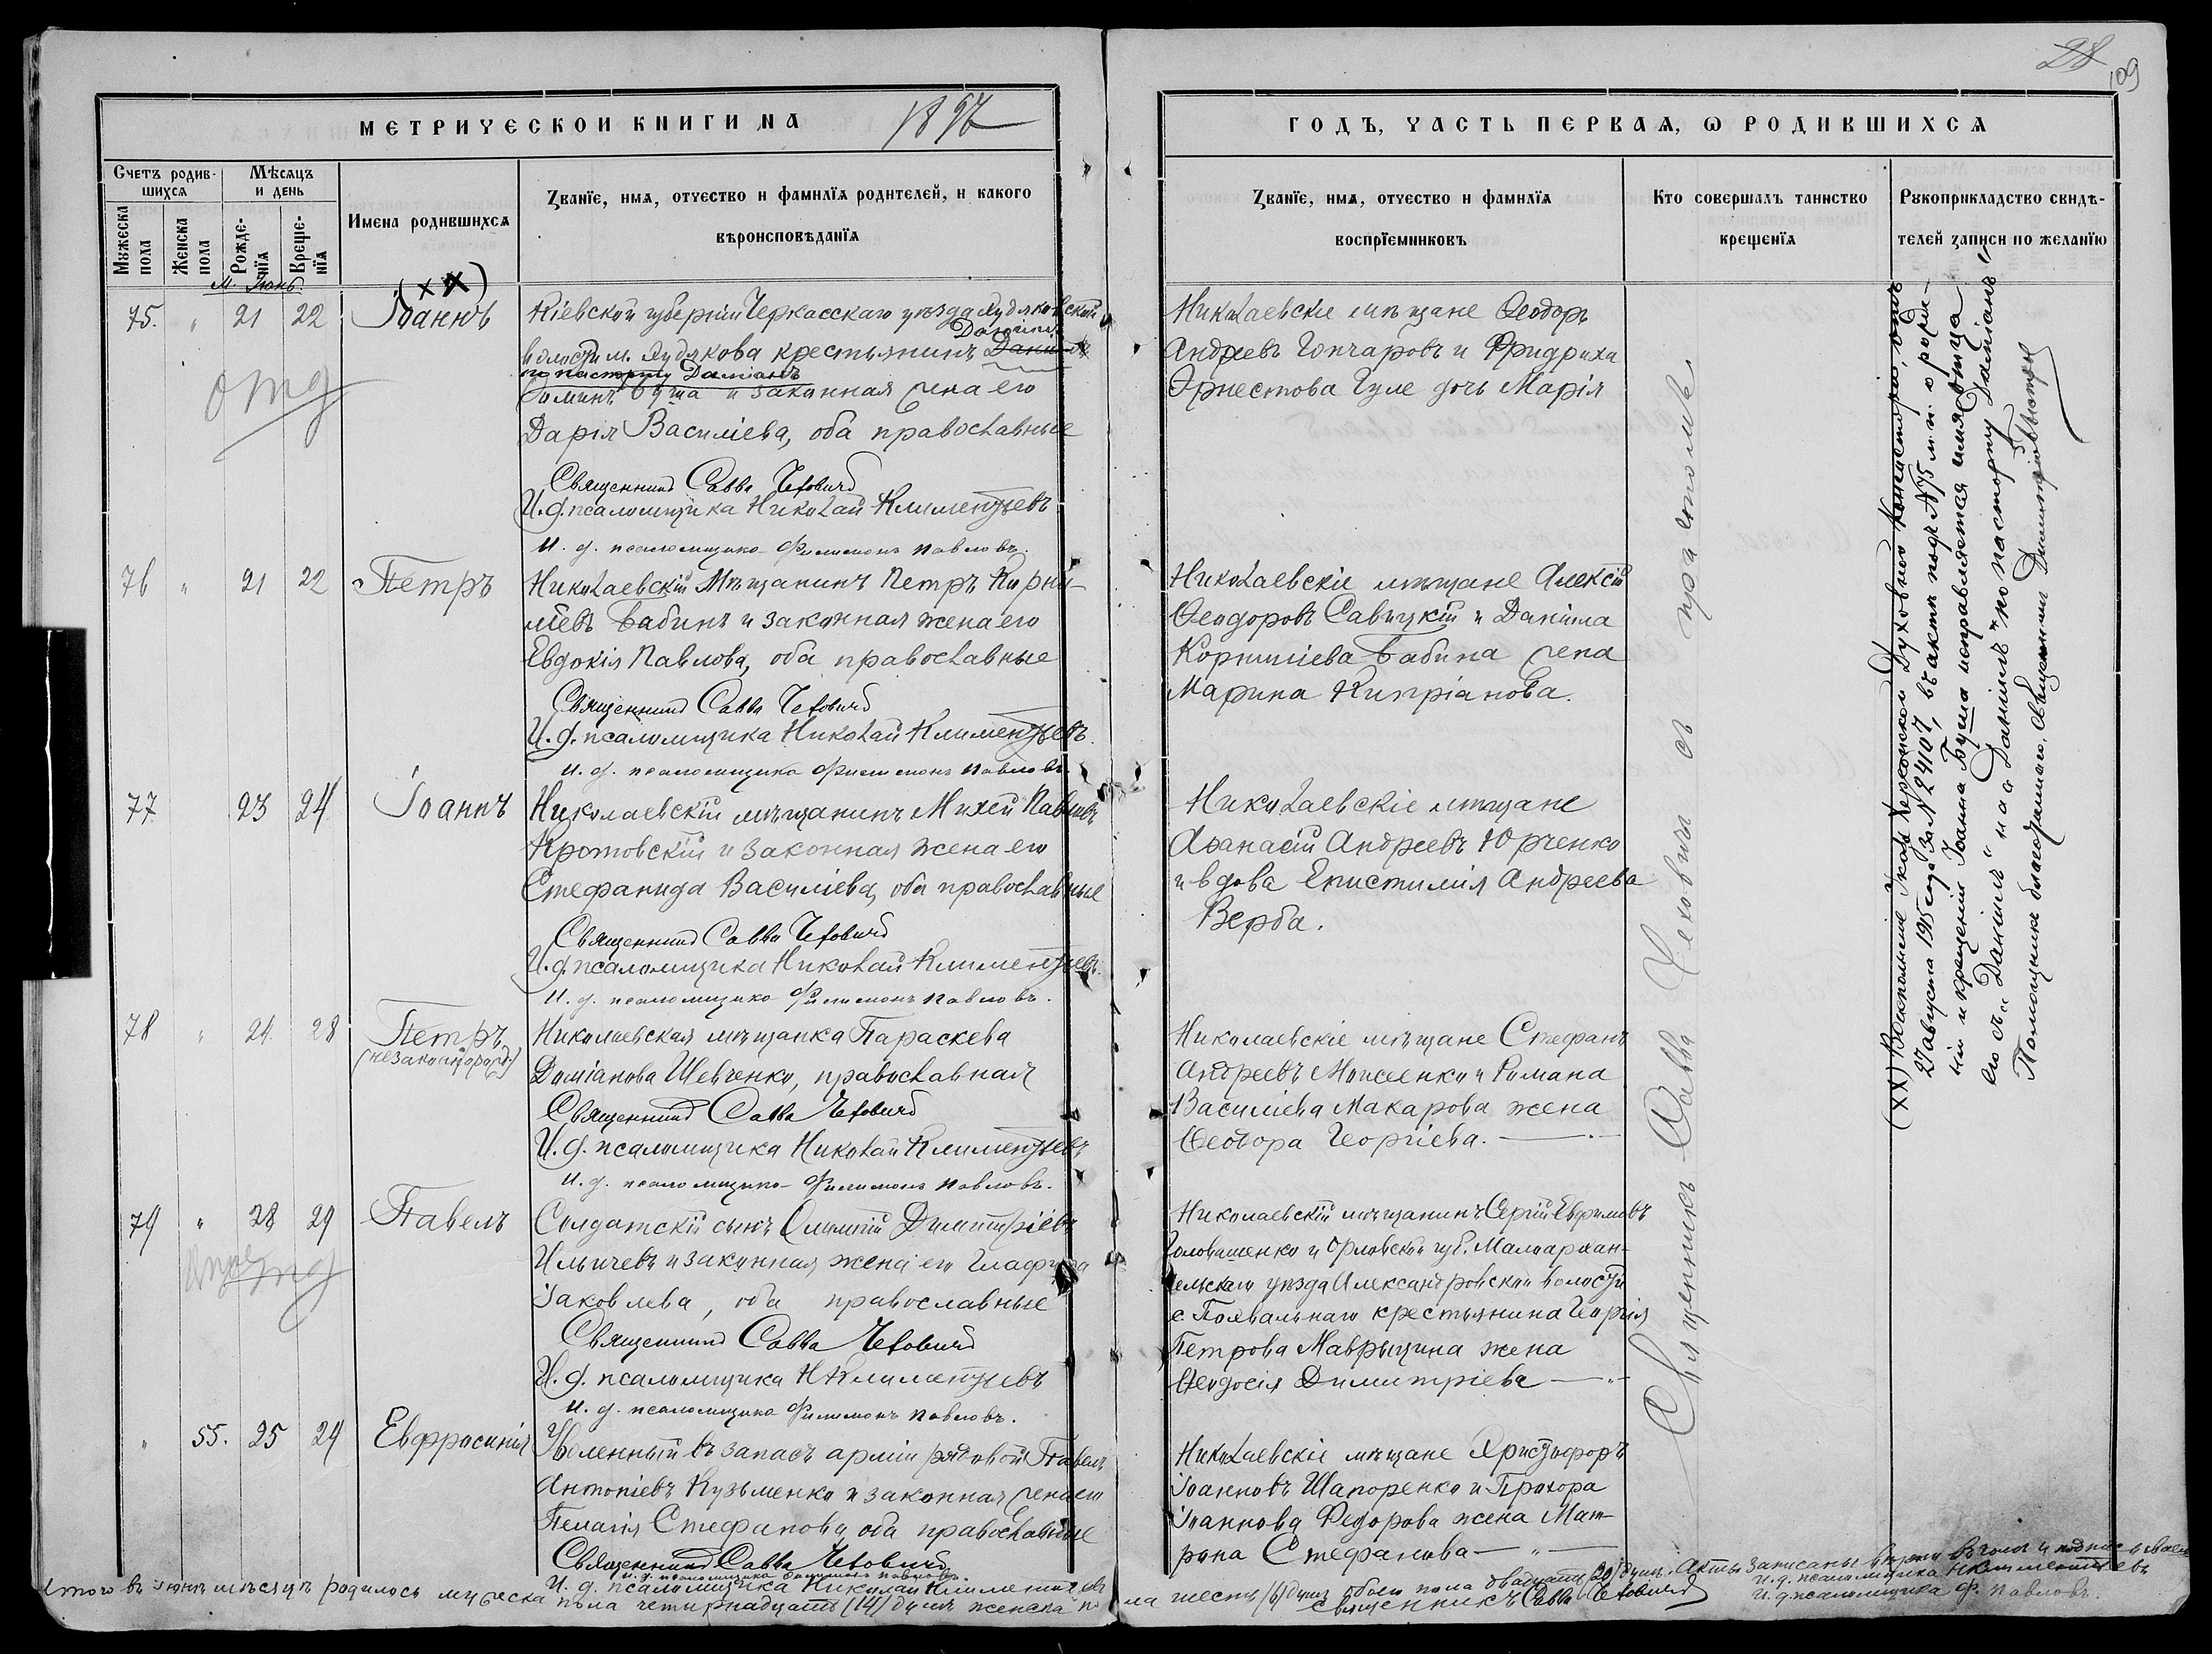 28
109
МЕТРИЧЕСКОЙ КНИГИ НА 1897
ГОДЪ, ЧАСТЬ ПЕРВАЯ, Ѡ РОДИВШИХСЯ
Счетъ родив-
шихся
Мѣсяцъ
и день
Мужеска
пола
Женска
пола
Рожде-
нїя
Креще-
нїя
Имена родившихся
Званїе, имя, отчество и фамилїя родителей, и какого
вѣроисповѣданїя
Званїе, имя, отчество и фамилїя
воспрїемниковъ
Кто совершалъ таинство
крещенїя
Рукоприкладство свидѣ-
телей записи по желанїю
М. Іюнь.
(ХХ)
75. " 21 22 Іоаннъ
отд
Кіевской губерніи Черкасскаго уѣзда
волости м. крестьянинъ
по паспорту Даміанъ
Буша и законная жена его
Дарія Василіева, оба православные
Священникъ Савва Чехович
И. д. псаломщика Николай Климентьевъ
И. д. псаломщика Филимонъ Павловъ.
Николаевскіе мѣщане Ѳеодоръ
Андреевъ Гончаровъ и Фридриха
Эрнестова Гуле дочь Марія
76 " 21 22 Петръ
Николаевскій Мѣщанинъ Петръ Корни-
ліевъ Бабинъ и законная жена его
Евдокія Павлова, оба православные
Священникъ Савва Чехович
И. д. псаломщика Николай Климентьевъ.
И. д. псаломщика Филимонъ Павловъ.
Николаевскіе мѣщане Алексій
Ѳеодоровъ Савицкій и Даніила
Корниліева Бабина жена
Марина Кипріанова.
77 23 24 Іоаннъ
Николаевскій мѣщанинъ Михей Павловъ
Кротовскій и законная жена его
Стефанида Василіева, оба православные
Священникъ Савва Чехович
И. д. псаломщика Николай Климентьевъ.
И. д. псаломщика Филимонъ Павловъ.
Николаевскіе мѣщане
Аѳанасій Андреевъ Юрченко
и вдова Епистимія Андреева
Верба.
78 " 24. 28 Петръ
(незаконнорожд)
Николаевская мѣщанка Параскева
Даміанова Шевченко, православная
Священникъ Савва Чехович
И. д. псаломщика Николай Климентьевъ
И. д. псаломщика Филимонъ Павловъ.
Николаевскіе мѣщане Стефанъ
Андреевъ Моисеенко и Романа
Василіева Макарова жена
Ѳеодора Георгіева.
79 " 28 29 Павелъ
отд
Солдатскій сынъ Димитріевъ
Ильичевъ и законная жена его Глафира
Іаковлева, оба православные
Священникъ Савва Чехович
И. д. псаломщика Н Климентьевъ
И. д. псаломщика Филимонъ Павловъ.
Николаевскій мѣщанинъ Сергій Евфимовъ
Головашенко и Орловской губ. Малоархан-
гельскаго уѣзда Александровской волости
с. Похвальнаго крестьянина Георгія
Петрова Маврыцина жена
Ѳеодосія Димитріева
" 55. 25 29 Евфросинія
Уволенный въ запасъ арміи рядовой Павелъ
Антоніевъ Кузьменко и законная жена его
Пелагія Стефанова, оба православные
Священникъ Савва Чехович
И. д. псаломщика Филимонъ Павловъ.
И. д. псаломщика Николай Климентьевъ
Николаевскіе мѣщане Христофоръ
Іоанновъ Шапоренко и Прохора
Іоаннова Федорова жена Мат-
рона Стефанова
Священникъ Савва Чехович съ псаломщ.
(ХХ) Во исполненіе Указа Херсонской Духовной Консисторіи, отъ
27 августа 1915 года за № 24107, въ актѣ подъ № 75 м. п. о рожде-
ніи и крещеніи Іоанна Буша исправляется имя отца
его съ „Даніилъ" на „Даніилъ" по паспорту Даміанъ".
Помощникъ благочиннаго, священникъ Димитрій
Итого въ іюнѣ мѣсяцѣ родилось мужеска пола четырнадцать (14) душъ женска пола шесть (6) душъ обоего пола двадцать (20) душъ. Акты записаны вѣрно
Священникъ Савва Чехович
И. д. псаломщика Н Климентьевъ
И. д. псаломщика Ф. Павловъ.